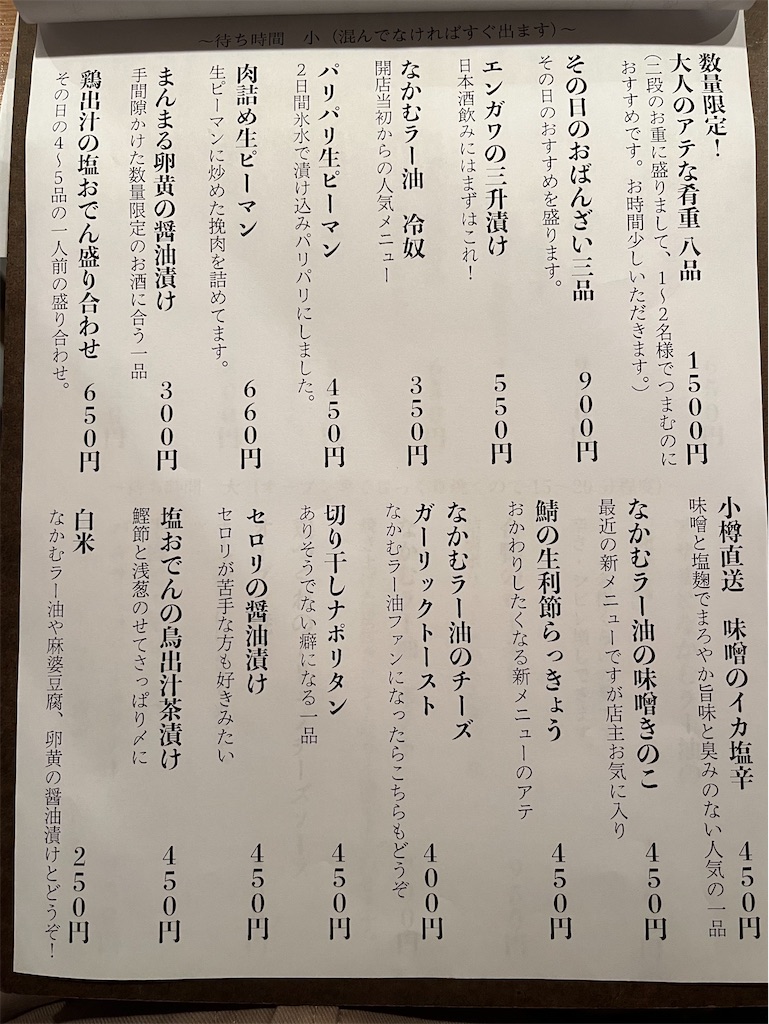 ～待ち時間　小（混んでなければすぐ出ます）～
数量限定！
大人のアテな肴重 八品　1500円
（二段のお重に盛りまして、1～2名様でつまむのに
おすすめです。お時間少しいただきます。）
その日のおばんざい三品　900円
その日のおすすめを盛ります。
エンガワの三升漬け　550円
日本酒飲みにはまずはこれ！
なかむラー油　冷奴　350円
開店当初からの人気メニュー
パリパリ生ピーマン　450円
2日間氷水で漬け込みパリパリにしました。
肉詰め生ピーマン　660円
生ピーマンに炒めた挽肉を詰めてます。
まんまる卵黄の醤油漬け　300円
手間隙かけた数量限定のお酒に合う一品
鶏出汁の塩おでん盛り合わせ　650円
その日の4～5品の一人前の盛り合わせ。
小樽直送　味噌のイカ塩辛　450円
味噌と塩麹でまろやか旨味と臭みのない人気の一品
なかむラー油の味噌きのこ　450円
最近の新メニューですが店主お気に入り
鯖の生利節らっきょう　450円
おかわりしたくなる新メニューのアテ
なかむラー油のチーズ
ガーリックトースト　400円
なかむラー油ファンになったらこちらもどうぞ
切り干しナポリタン　450円
ありそうでない癖になる一品
セロリの醤油漬け　450円
セロリが苦手な方も好きみたい
塩おでんの鳥出汁茶漬け　450円
鰹節と浅葱のせてさっぱり〆に
白米　250円
なかむラー油や麻婆豆腐、卵黄の醤油漬けとどうぞ！